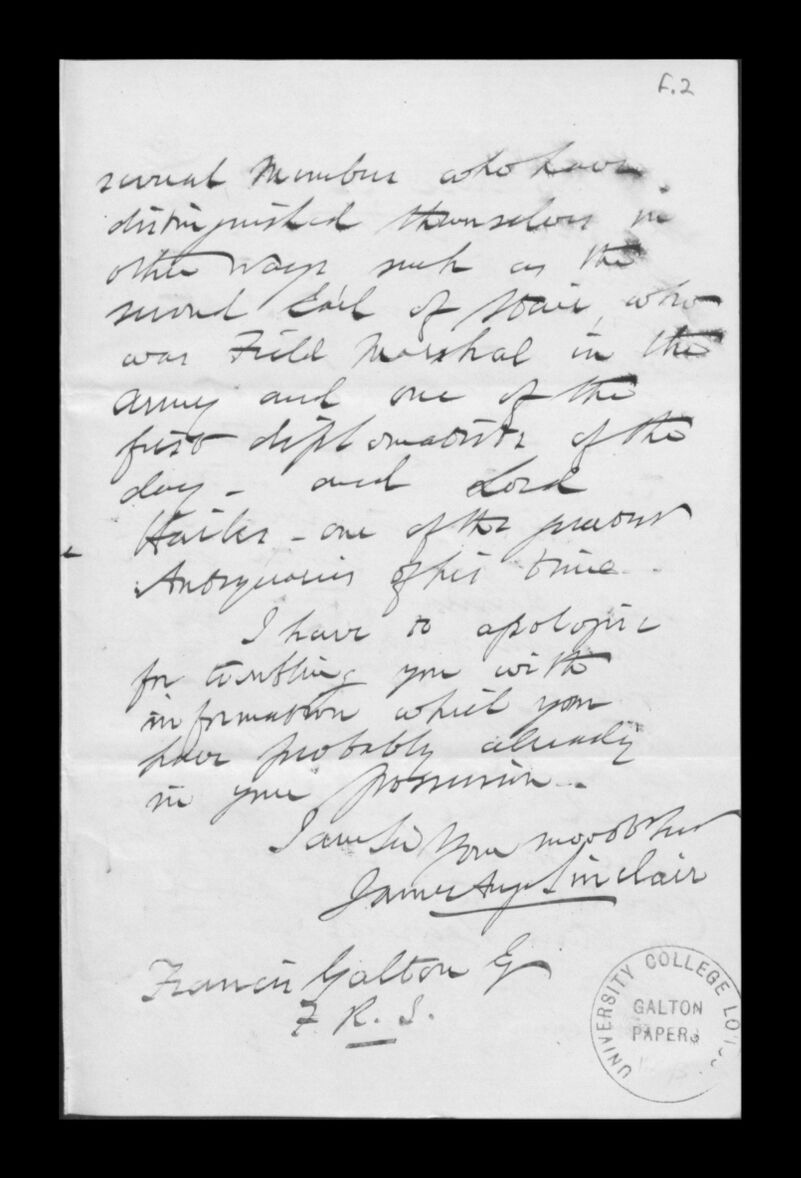 F.2
several Members who have
distinguished themselves in
other ways such as the
second Earl of Stair, who
was Field Marshal in the
Army and one of the
first diplomatists of the
day - and Lord
Hailes - one of the greatest
Antiquaries of his time -
I have to apologize
for troubling you with
information which you
have probably already
in your possession -
I am Sir Your most obt
James Aug Sinclair
Francis Galton Esq
F. R. S.
UNIVERSITY COLLEGE
GALTON
PAPERS